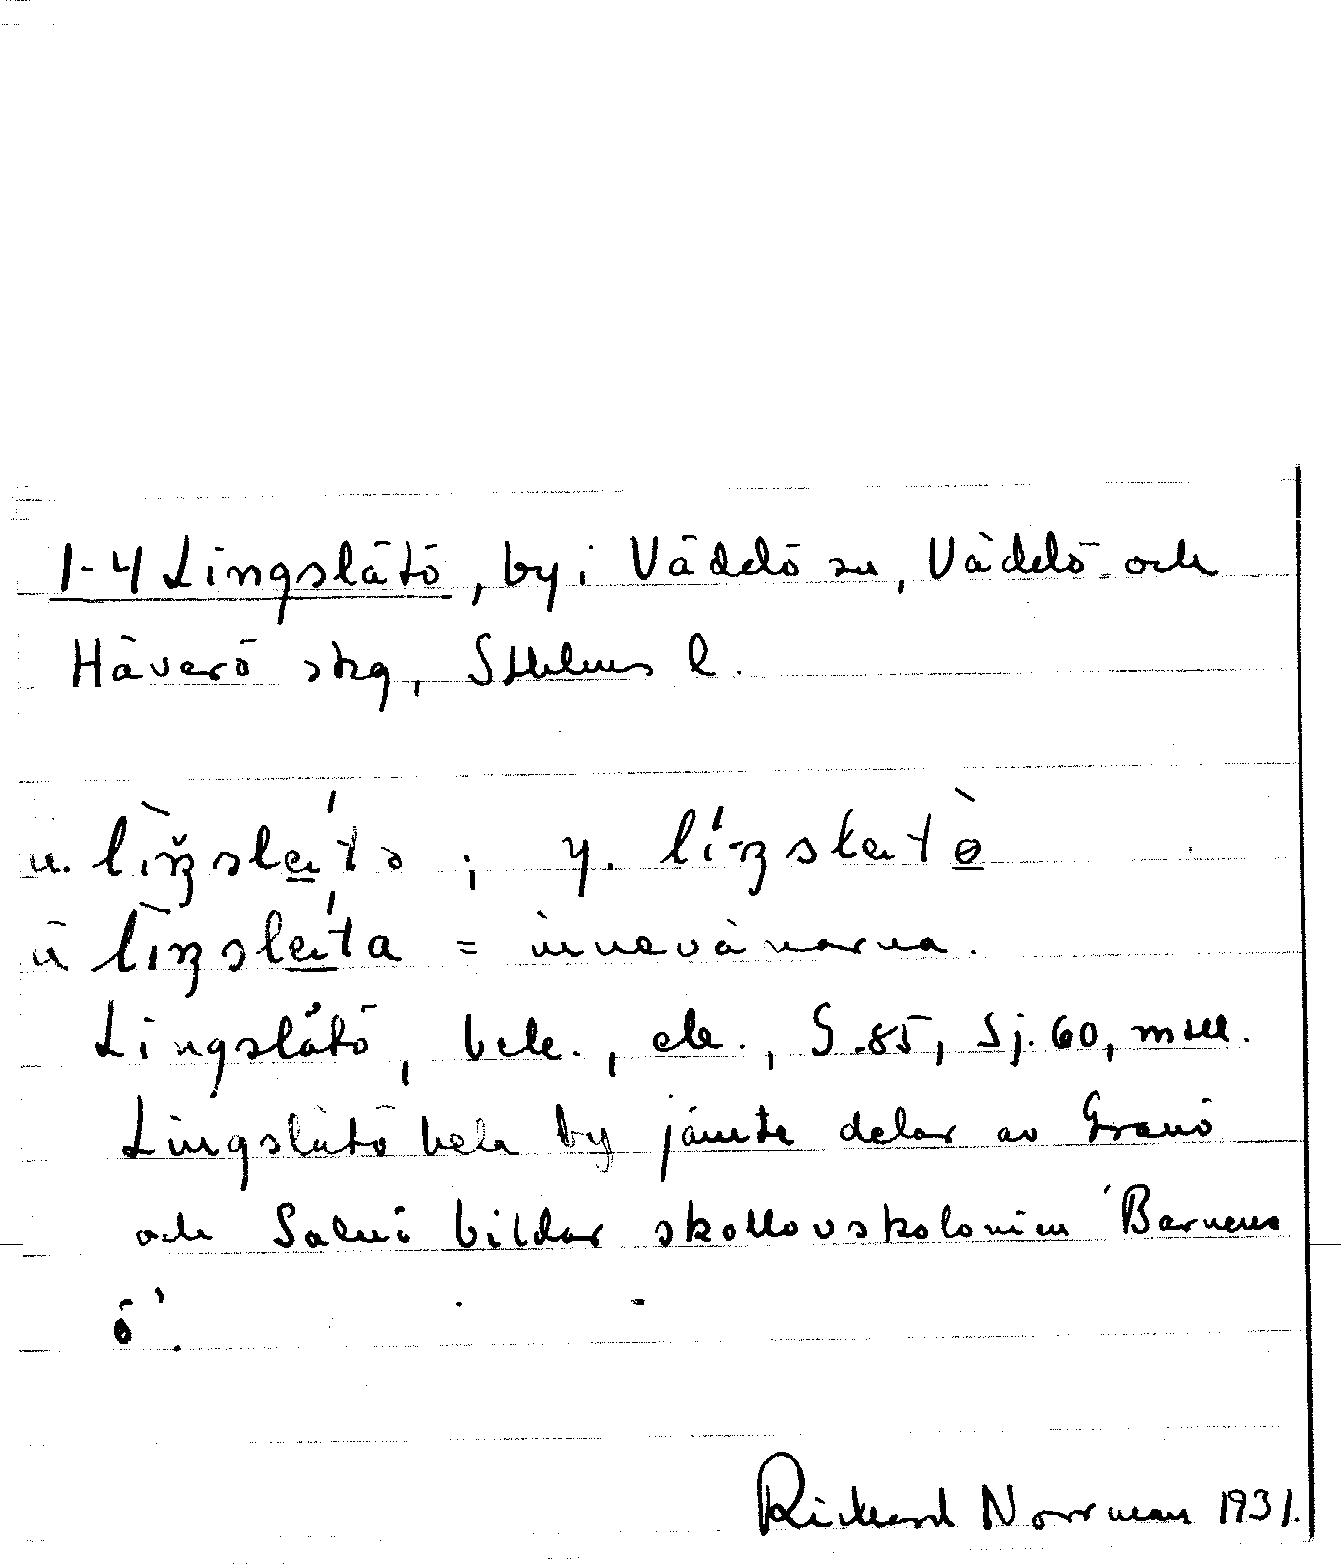 1-4 Lingslätö, by i Väddö sn, Väddö och
Häverö skg, Sthlms l.
u. lìŋslata ; y. lí-ŋslatò
ä lìŋslata = innevånarna.
Lingslätö, bek., ek., G.85, Sj.60, mtll.
Lingslätö hela by jämte delar av Granö
och Salnö bildar skollovskolonien 'Barnens
ö'.
Rickard Norrman 1931.